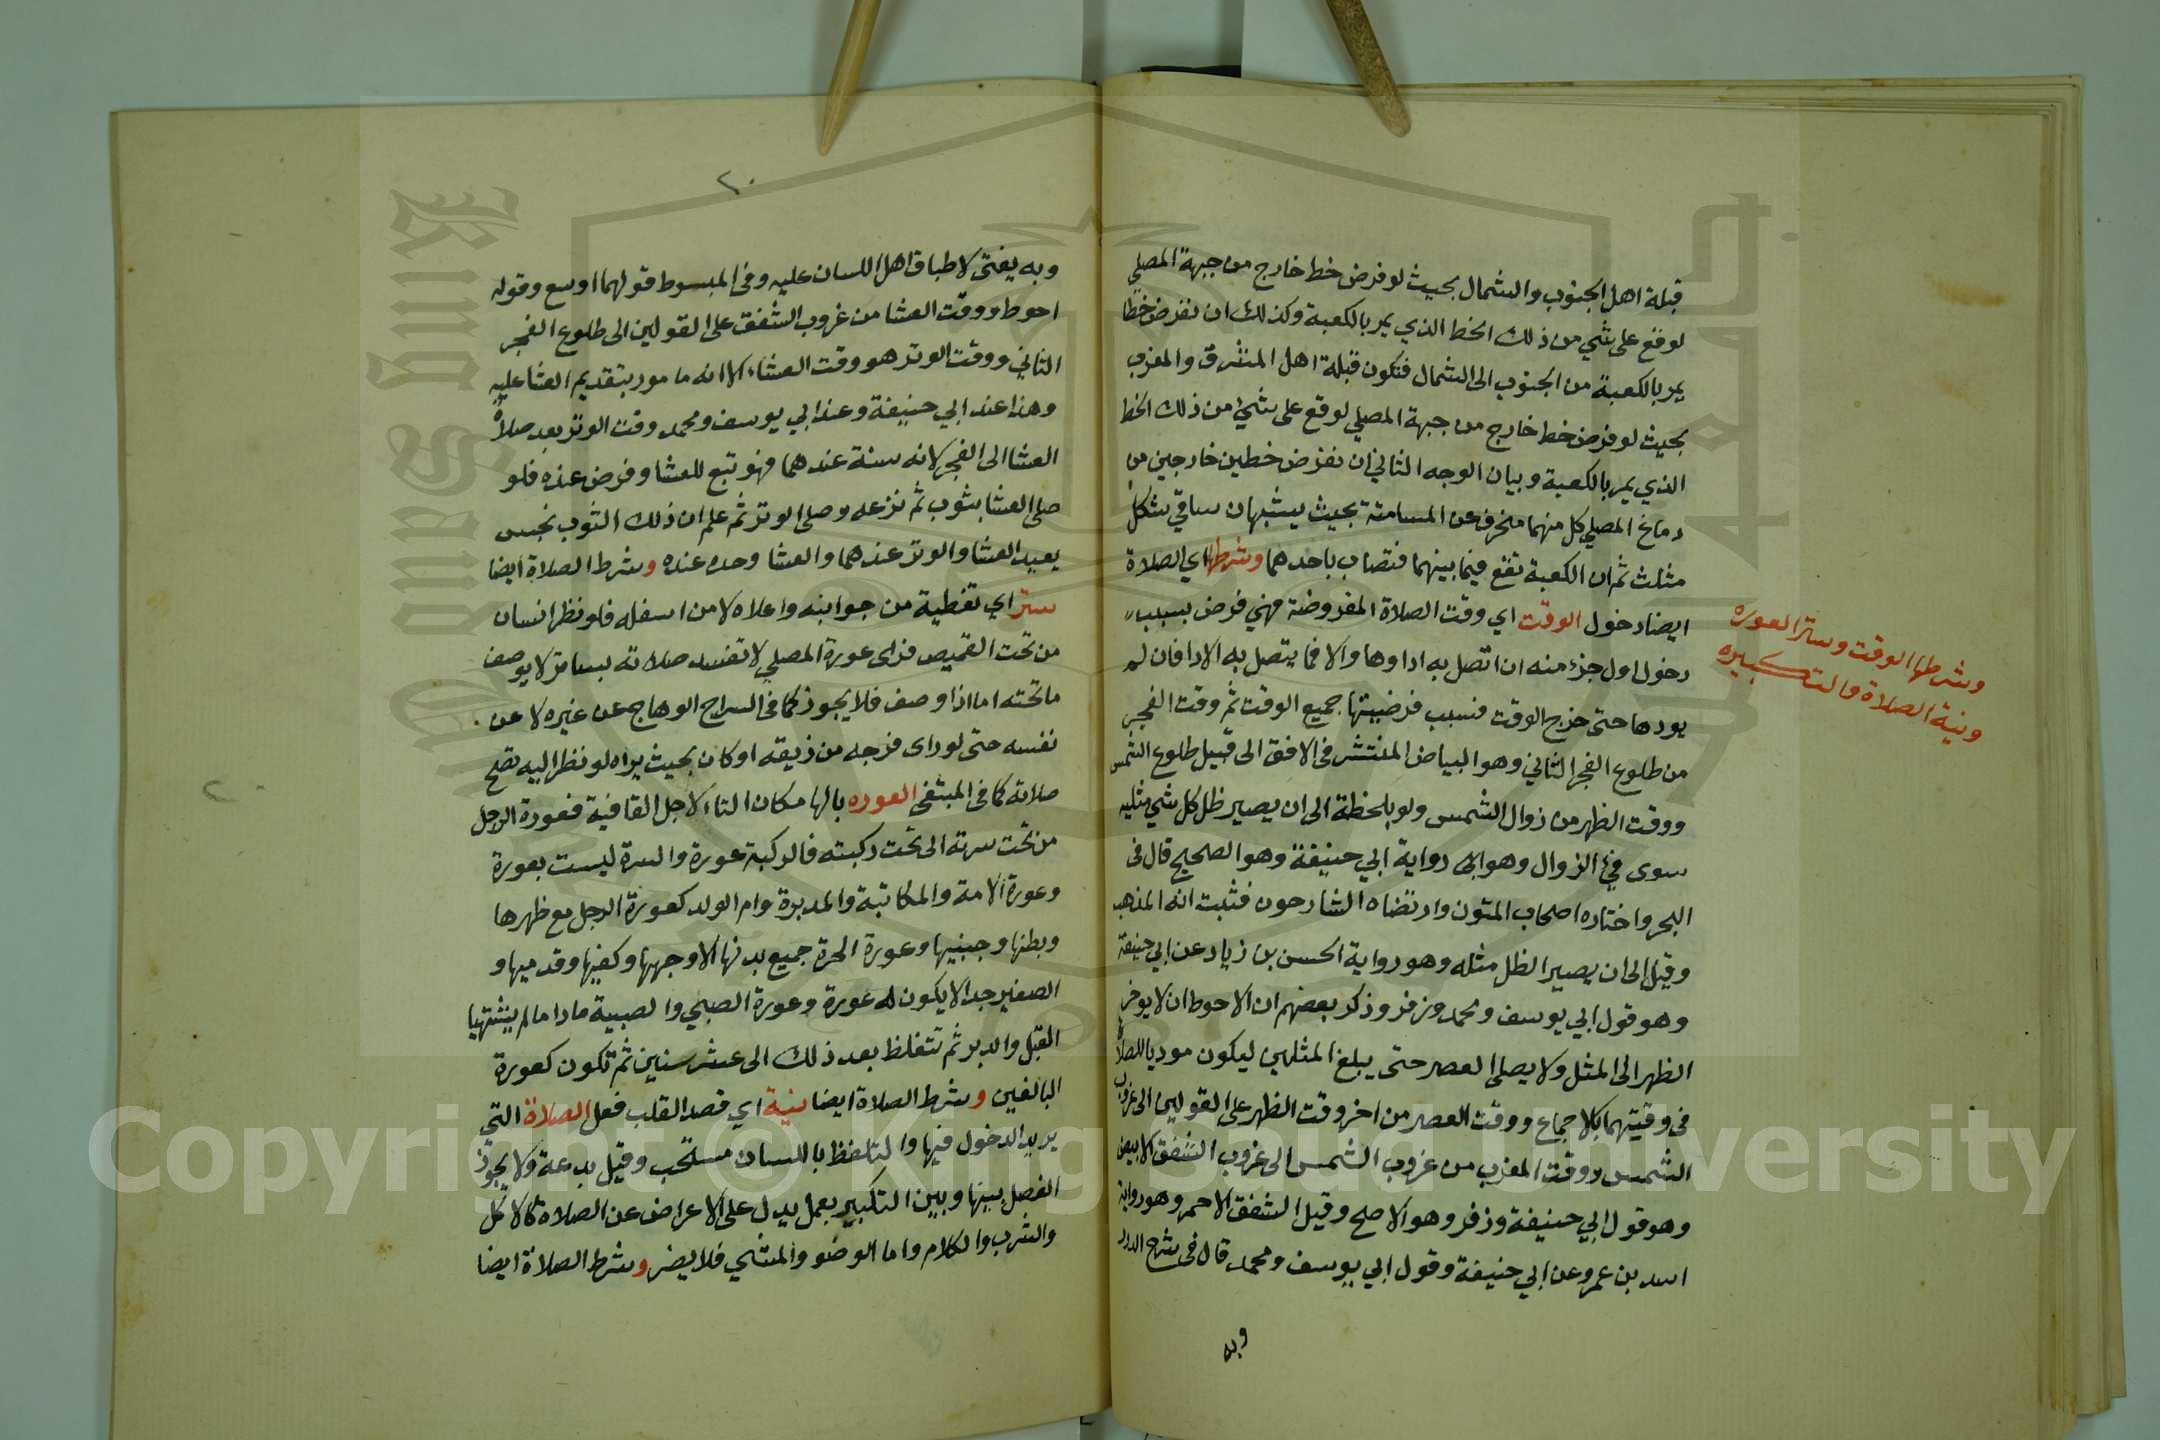 قبلة اهل الجنوب والشمال بحيث لو فرض خط خارج من جبهة المصلي
لوقع على شي من ذلك الخط الذي يمر بالكعبة وكذلك ان نفرض خطا
يمر بالكعبة من الجنوب الى الشمال فتكون قبلة اهل المشرق والمغرب
بحيث لو فرض خط خارج من جبهة المصلي لوقع على شيء من ذلك الخط
الذي يمر بالكعبة وبيان الوجه الثاني ان نفرض خطين خارجين من
دماغ المصلي كل منهما منحرف عن المسامتة بحيث يشبهان ساقي شكل
مثلث ثم ان الكعبة تقع فيما بينهما فتصاب باحدهما وشرطها اي الصلاة
ايضا دخول الوقت اي وقت الصلاة المفروضة فهي فرض بسبب
دخول اول جزء منه ان اتصل به اداوها والا فما يتصل به الادا فان لم
يودها حتى خرج الوقت فسبب فرضيتها جميع الوقت ثم وقت الفجر
من طلوع الفجر الثاني وهو البياض المنتشر في الافق الى قبيل طلوع الشمس
ووقت الظهر من زوال الشمس ولو بلحظة الى ان يصير ظل كل شي مثليه
سوى فيء الزوال وهو رواية ابي حنيفة وهو الصحيح قال في
البحر واختاره اصحاب المتون وارتضاه الشارحون فثبت انه المذهب
وقيل الى ان يصير الظل مثله وهو رواية الحسن بن زياد عن ابي حنيفة
وهو قول ابي يوسف ومحمد وزفر وذكر بعضهم ان الاحوط ان لا يوخر
الظهر الى المثل ولا يصلى العصر حتى يبلغ المثلين ليكون موديا للصلاة
في وقتيهما بالاجماع ووقت العصر من اخر وقت الظهر على القولين الى غروب
الشمس ووقت المغرب من غروب الشمس الى غروب الشفق الابيض
وهو قول ابي حنيفة وزفر وهو الاصح وقيل الشفق الاحمر وهو رواية
اسد بن عمرو عن ابي حنيفة وقول ابي يوسف ومحمد قال في شرح الدرر
وبه
وشرطها الوقت وستر العوره
ونية الصلاة والتكبيره
٢٠
وبه يفتى لاطباق اهل اللسان عليه وفي المبسوط قولهما اوسع وقوله
احوط ووقت العشا من غروب الشفق على القولين الى طلوع الفجر
الثاني ووقت الوتر هو وقت العشاء الا انه مامور بتقديم العشا عليه
وهذا عند ابي حنيفة وعند ابي يوسف ومحمد وقت الوتر بعد صلاة
العشا الى الفجر لانه سنة عندهما فهو تبع للعشا وفرض عنده فلو
صلى العشا بثوب ثم نزعه وصلى الوتر ثم علم ان ذلك الثوب نجس
يعيد العشا والوتر عندهما والعشا وحده عنده وشرط الصلاة ايضا
ستر اي تغطية من جوانبه واعلاه لا من اسفله فلو نظر انسان
من تحت القميص فراى عورة المصلي لا تفسد صلاته بساتر لا يوصف
ما تحته اما اذا وصف فلا يجوز كما في السراج الوهاج عن غيره لا عن
نفسه حتى لو راى فرجه من زيقه او كان بحيث يراه لو نظر اليه تصح
صلاته كما في المبتغى العوره بالها مكان التاء لاجل القافية فعورة الرجل
من تحت سرته الى تحت ركبته فالركبة عورة والسرة ليست بعورة
وعورة الامة والمكاتبة والمدبرة وام الولد كعورة الرجل مع ظهرها
وبطنها وجنبيها وعورة الحرة جميع بدنها الا وجهها وكفيها وقدميها و
الصغير جدا لا يكون له عورة وعورة الصبي والصبية ماداما لم يشتهيا
القبل والدبر ثم تتغلظ بعد ذلك الى عشر سنين ثم تكون كعورة
البالغين وشرط الصلاة ايضا نية اي قصد القلب فعل الصلاة التي
يريد الدخول فيها والتلفظ باللسان مستحب وقيل بدعة ولا يجوز
الفصل بينها وبين التكبير بعمل يدل على الاعراض عن الصلاة كالاكل
والشرب والكلام واما الوضو والمشي فلا يضر وشرط الصلاة ايضا
Copyright © King Saud University